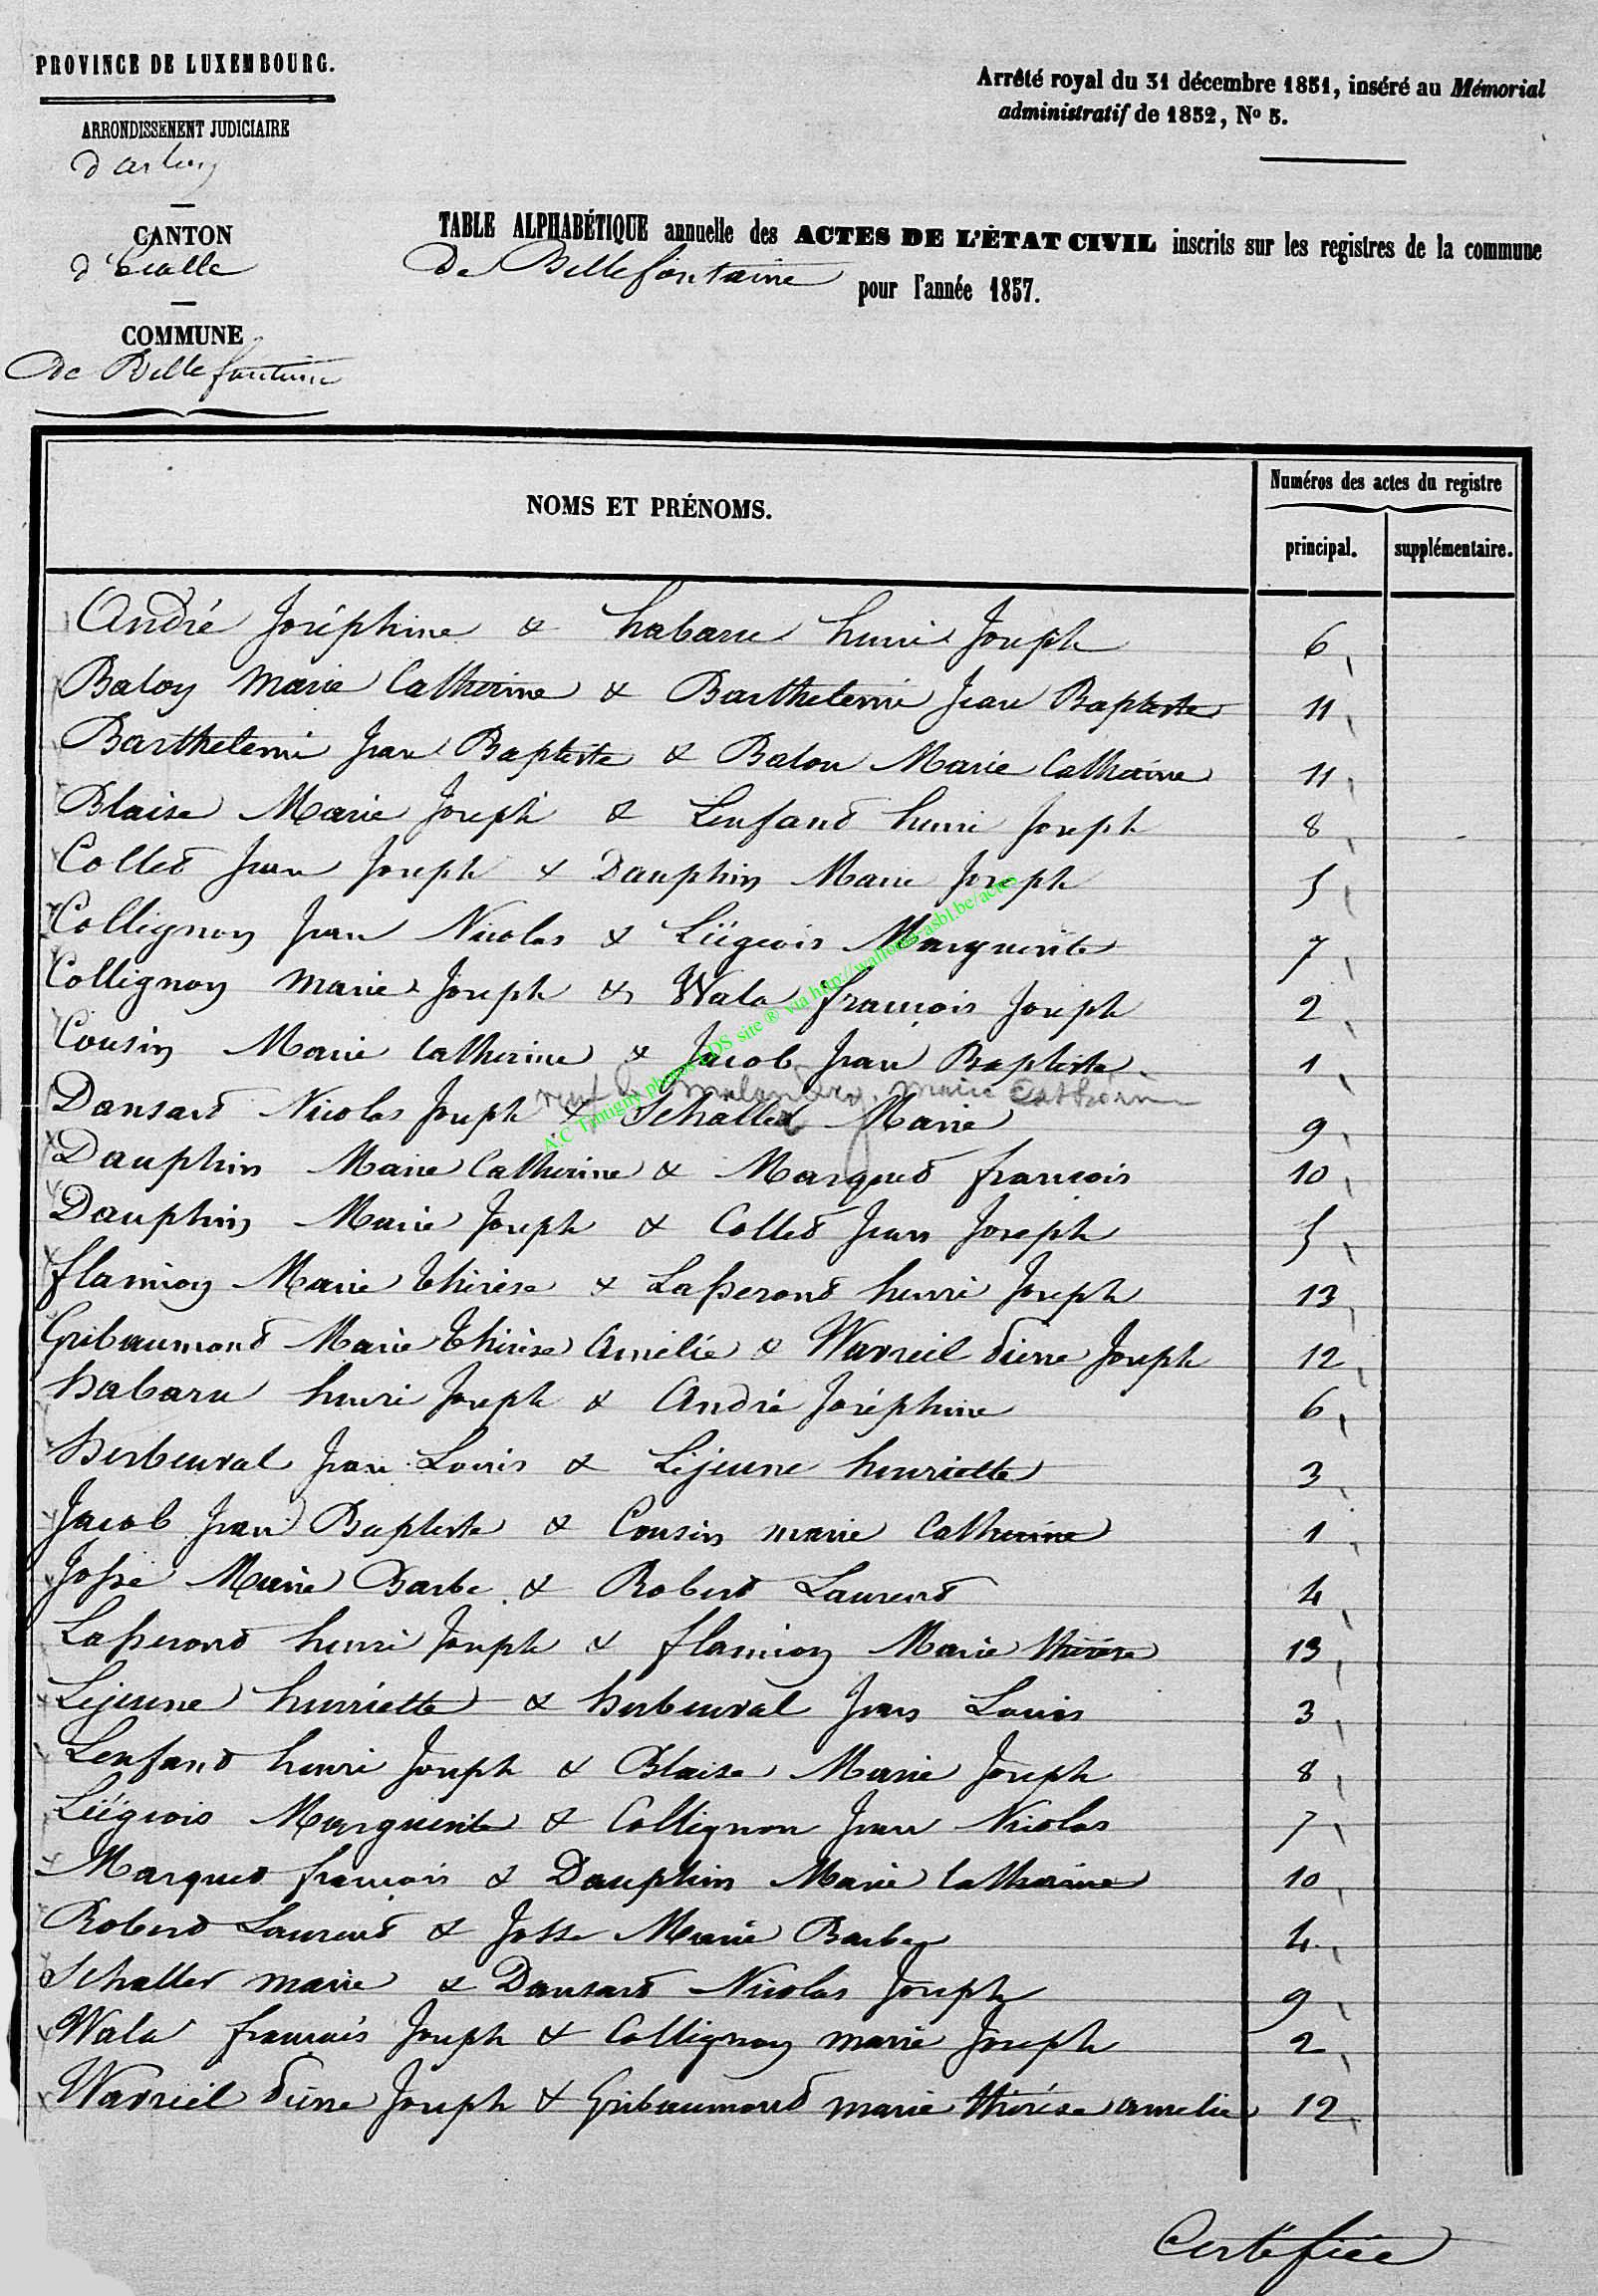 PROVINCE DE LUXEMBOURG.
Arrêté royal du 31 décembre 1851, inséré au Mémorial
administratif de 1852, No 5.
ARRONDISSEMENT JUDICIAIRE
d'arlon
CANTON
d'Etalle
TABLE ALPHABÉTIQUE annuelle des ACTES DE L'ÉTAT CIVIL inscrits sur les registres de la commune
De Bellefontaine pour l'année 1857.
COMMUNE
De Bellefontaine
NOMS ET PRÉNOMS.
Numéros des actes du registre
principal. supplémentaire.
André Joséphine & habaru henri Joseph 6
Balon Marie Catherine & Barthelemi Jean Baptiste 11
Barthelemi Jean Baptiste & Balon Marie Catherine 11
Blaise Marie Joseph & Lenfant henri Joseph 8
Collet Jean Joseph & Dauphin Marie Joseph 5
Collignon Jean Nicolas & Liégeois Marguerite 7
Collignon Marie Joseph & Wala françois Joseph 2
Cousin Marie Catherine & Jacob Jean Baptiste 1
veuf de Marie Catherine
Dansart Nicolas Joseph & Schaller Marie 9
Dauphin Marie Catherine & Marquet françois 10
Dauphin Marie Joseph & Collet Jean Joseph 5
flamion Marie Thérèse & Lasseront henri Joseph 13
Gribaumont Marie Thérèse Amélie & Wavreil Pierre Joseph 12
habaru henri Joseph & André Joséphine 6
herbeuval Jean Louis & Lejeune henriette 3
Jacob Jean Baptiste & Cousin marie Catherine 1
Josse Marie Barbe & Robert Laurent 4
Lasseront henri Joseph & flamion Marie thérèse 13
Lejeune henriette & herbeuval Jean Louis 3
Lenfant henri Joseph & Blaise Marie Joseph 8
Liégeois Marguerite & Collignon Jean Nicolas 7
Marquet françois & Dauphin Marie Catherine 10
Robert Laurent & Josse Marie Barbe 4
Schaller marie & Dansart Nicolas Joseph 9
Wala françois Joseph & Collignon marie Joseph 2
Wavreil Pierre Joseph & Gribaumont marie thérèse amelie 12
Certifiée
A.C Tintigny photos GDS site ® via http://wallonia-asbl.be/actes